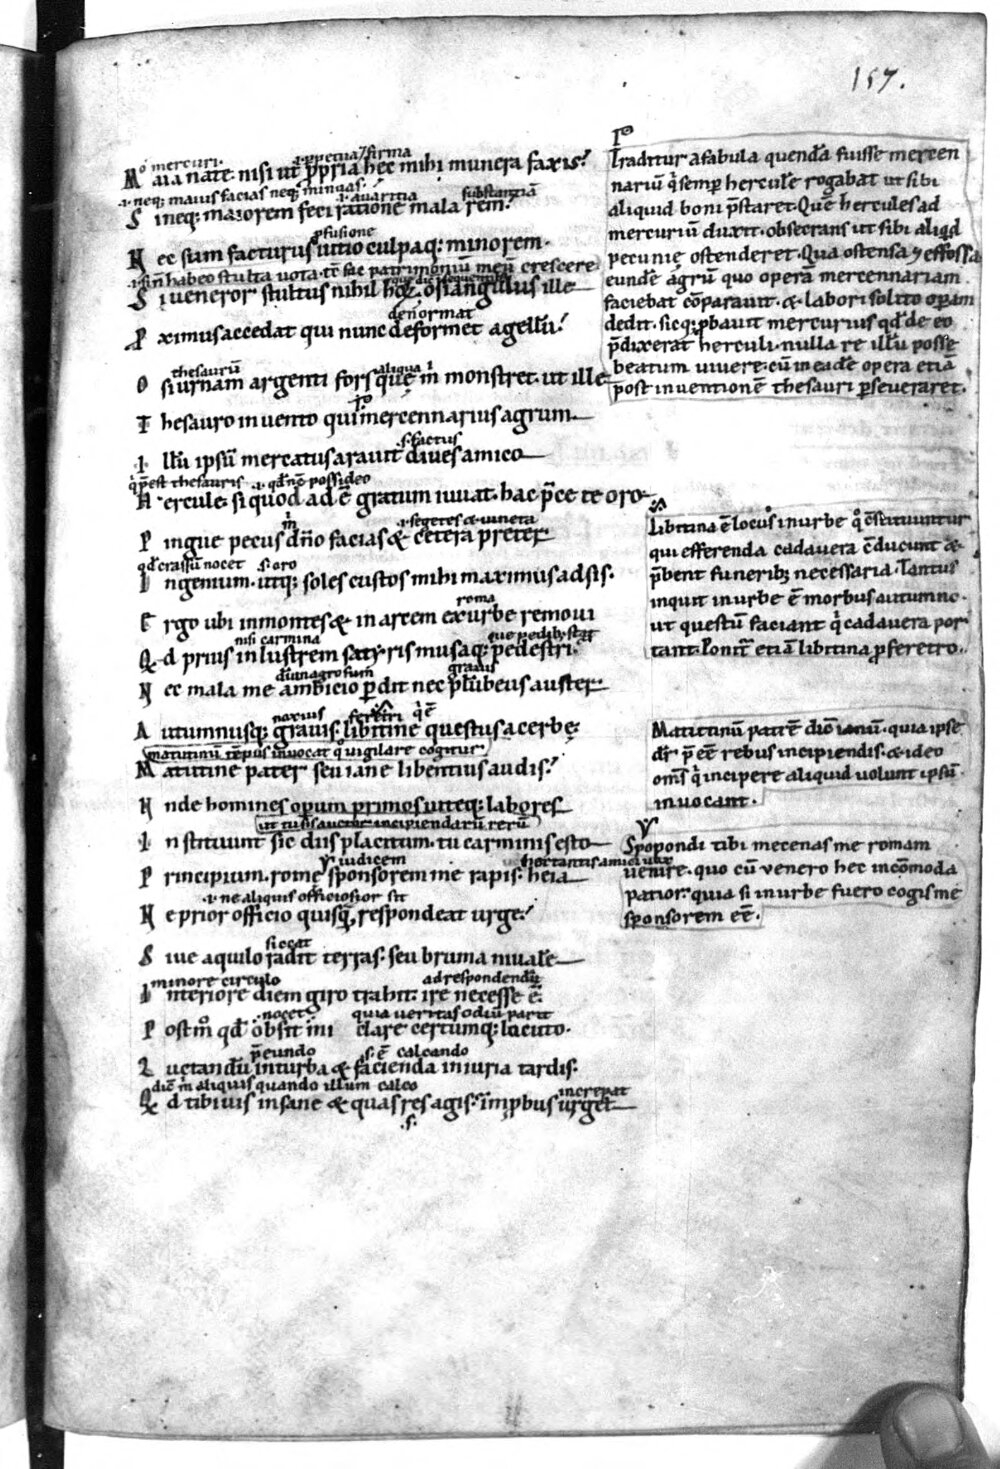 157.
o mercuri. .i. ꝑpetua ⁊ firma
Maia nate. nisi ut ꝓpria hec mihi munera faxis.
.i. neq; maius facias neq; minuas. .i. avaritia substantiā
Si neq; maiorem feci ratione mala rem.
ꝓfusione
Nec sum facturus uitio culpaq; minorem.
.i. si ñ habeo stulta vota. tē fac patrimoniū meū crescere.
Si veneror stultus nihil hoꝝ. o si angulus ille
denormat
Pximus accedat qui nunc deformet agellū.
thesaurū aliqua
O si urnam argenti fors que m̄ monstret. ut ille
Thesauro invento qui mercennarius agrum
.s. factus
Illū ipsū mercatus aravit dives amico
q̇ p̄est thesauris .i. qd̄ nc̄ possideo
Hercule. si quod adē gratum iuvat. hac p̄ce te oro
m̄ .i. segetes & vineta
Pingue pecus dn̄o facias & cetera preter
qd̄ crassū nocet .s. oro
Ingenium. utq; soles custos mihi maximus adsis.
roma
Ergo ubi in montes & in arcem ex urbe removi
nisi carmina que pedibꝰ stat
Qd prius inlustrem satyris musaq; pedestri.
gravis
Nec mala me ambicio ꝑdit nec plūbeus auster
noxius feretri q̇ ē
Autumnusq; gravis. libitine questus acerbe.
matutinū tēpus invocat q̇ vigilare cogitur
Matutine pater seu iane libentius audis.
Unde homines operum primos uiteq; labores
ut tu sis auctor incipiendarū rerū
Instituunt sic diis placitum. tu carminis esto
iudicem hortantis amici vox
Principium. rome sponsorem me rapis. heia
.i. ne aliquis officiosior sit
Ne prior officio quisq̄, respondeat urge.
siccat
Sive aquilo radit terras. seu bruma nivalē
minore circulo ad respondendū
Interiore diem giro trahit. ire necesse ē.
.nocet quia veritas odiū parit
Postm̊ qd̄ obsit mi clare certumq; locuto.
p̄eundo .s. ē calcando
Luctandū in turba & facienda iniuria tardis.
dic̄ m̄ aliquis quando illum calco increpat
Qd tibi vis insane & quas res agis. imꝓbus urget
.s.
Traditur a fabula quendā fuisse mercen
nariū q̇ semꝑ herculē rogabat ut sibi
aliquid boni p̄staret. Quē hercules ad
mercuriū duxit. obsecrans ut sibi aliqd
pecunie ostenderet. Qua ostensa ⁊ effossa
eundē agrū quo operā mercennariam
faciebat cōparavit. & labori solito operam
dedit. sicq; ꝓbavit mercurius qd̄ de eo
p̄dixerat herculi. nulla re illū posse
beatum vivere. cū in eadē opera etiā
post inventionē thesauri ꝑseveraret.
Libitina ē locus in urbe q̊ cōstituuntur
qui efferenda cadavera cōducunt &
p̄bent funeribꝫ necessaria. Tantus
inquit in urbe ē morbus autumno.
ut questū faciant q̇ cadavera por
tant. Ponit̄ etiā libitina ꝓ feretro.
Matutinū patrē dic̄ ianū. quia ipse
dr̄ p̄eē rebus incipiendis. & ideo
om̄s q̇ incipere aliquid volunt ipsū
invocant.
Spopondi tibi mecenas me romam
venire. quo cū venero hec incōmoda
patior. quia si in urbe fuero cogis me
sponsorem eē.